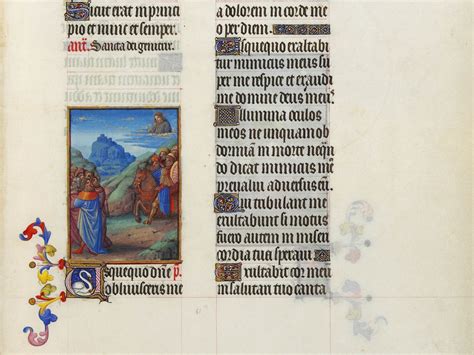 Sicut erat in princi
pio et nunc et semper.
añt. Sancta dei genitrix.
Usquequo dñe p.
oblivisceris me
a dolorem in corde me
o per diem.
Usquequo exaltabi
tur inimicus meus su
per me respice et exaudi
me domine deus meus
Illumina oculos
meos ne unquam ob
dormiam in morte neqñ
do dicat inimicus meus
prevalui adversus eum
Qui tribulant me
exultabunt si motus
fuero autem in miseri
cordia tua speravi
Exultabit cor meum
in salutari tuo canta